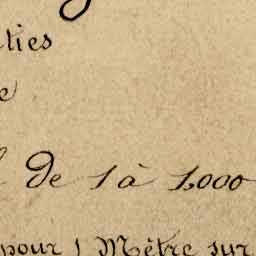 ties
e
de 1 à 1,000
pour 1 Mètre sur